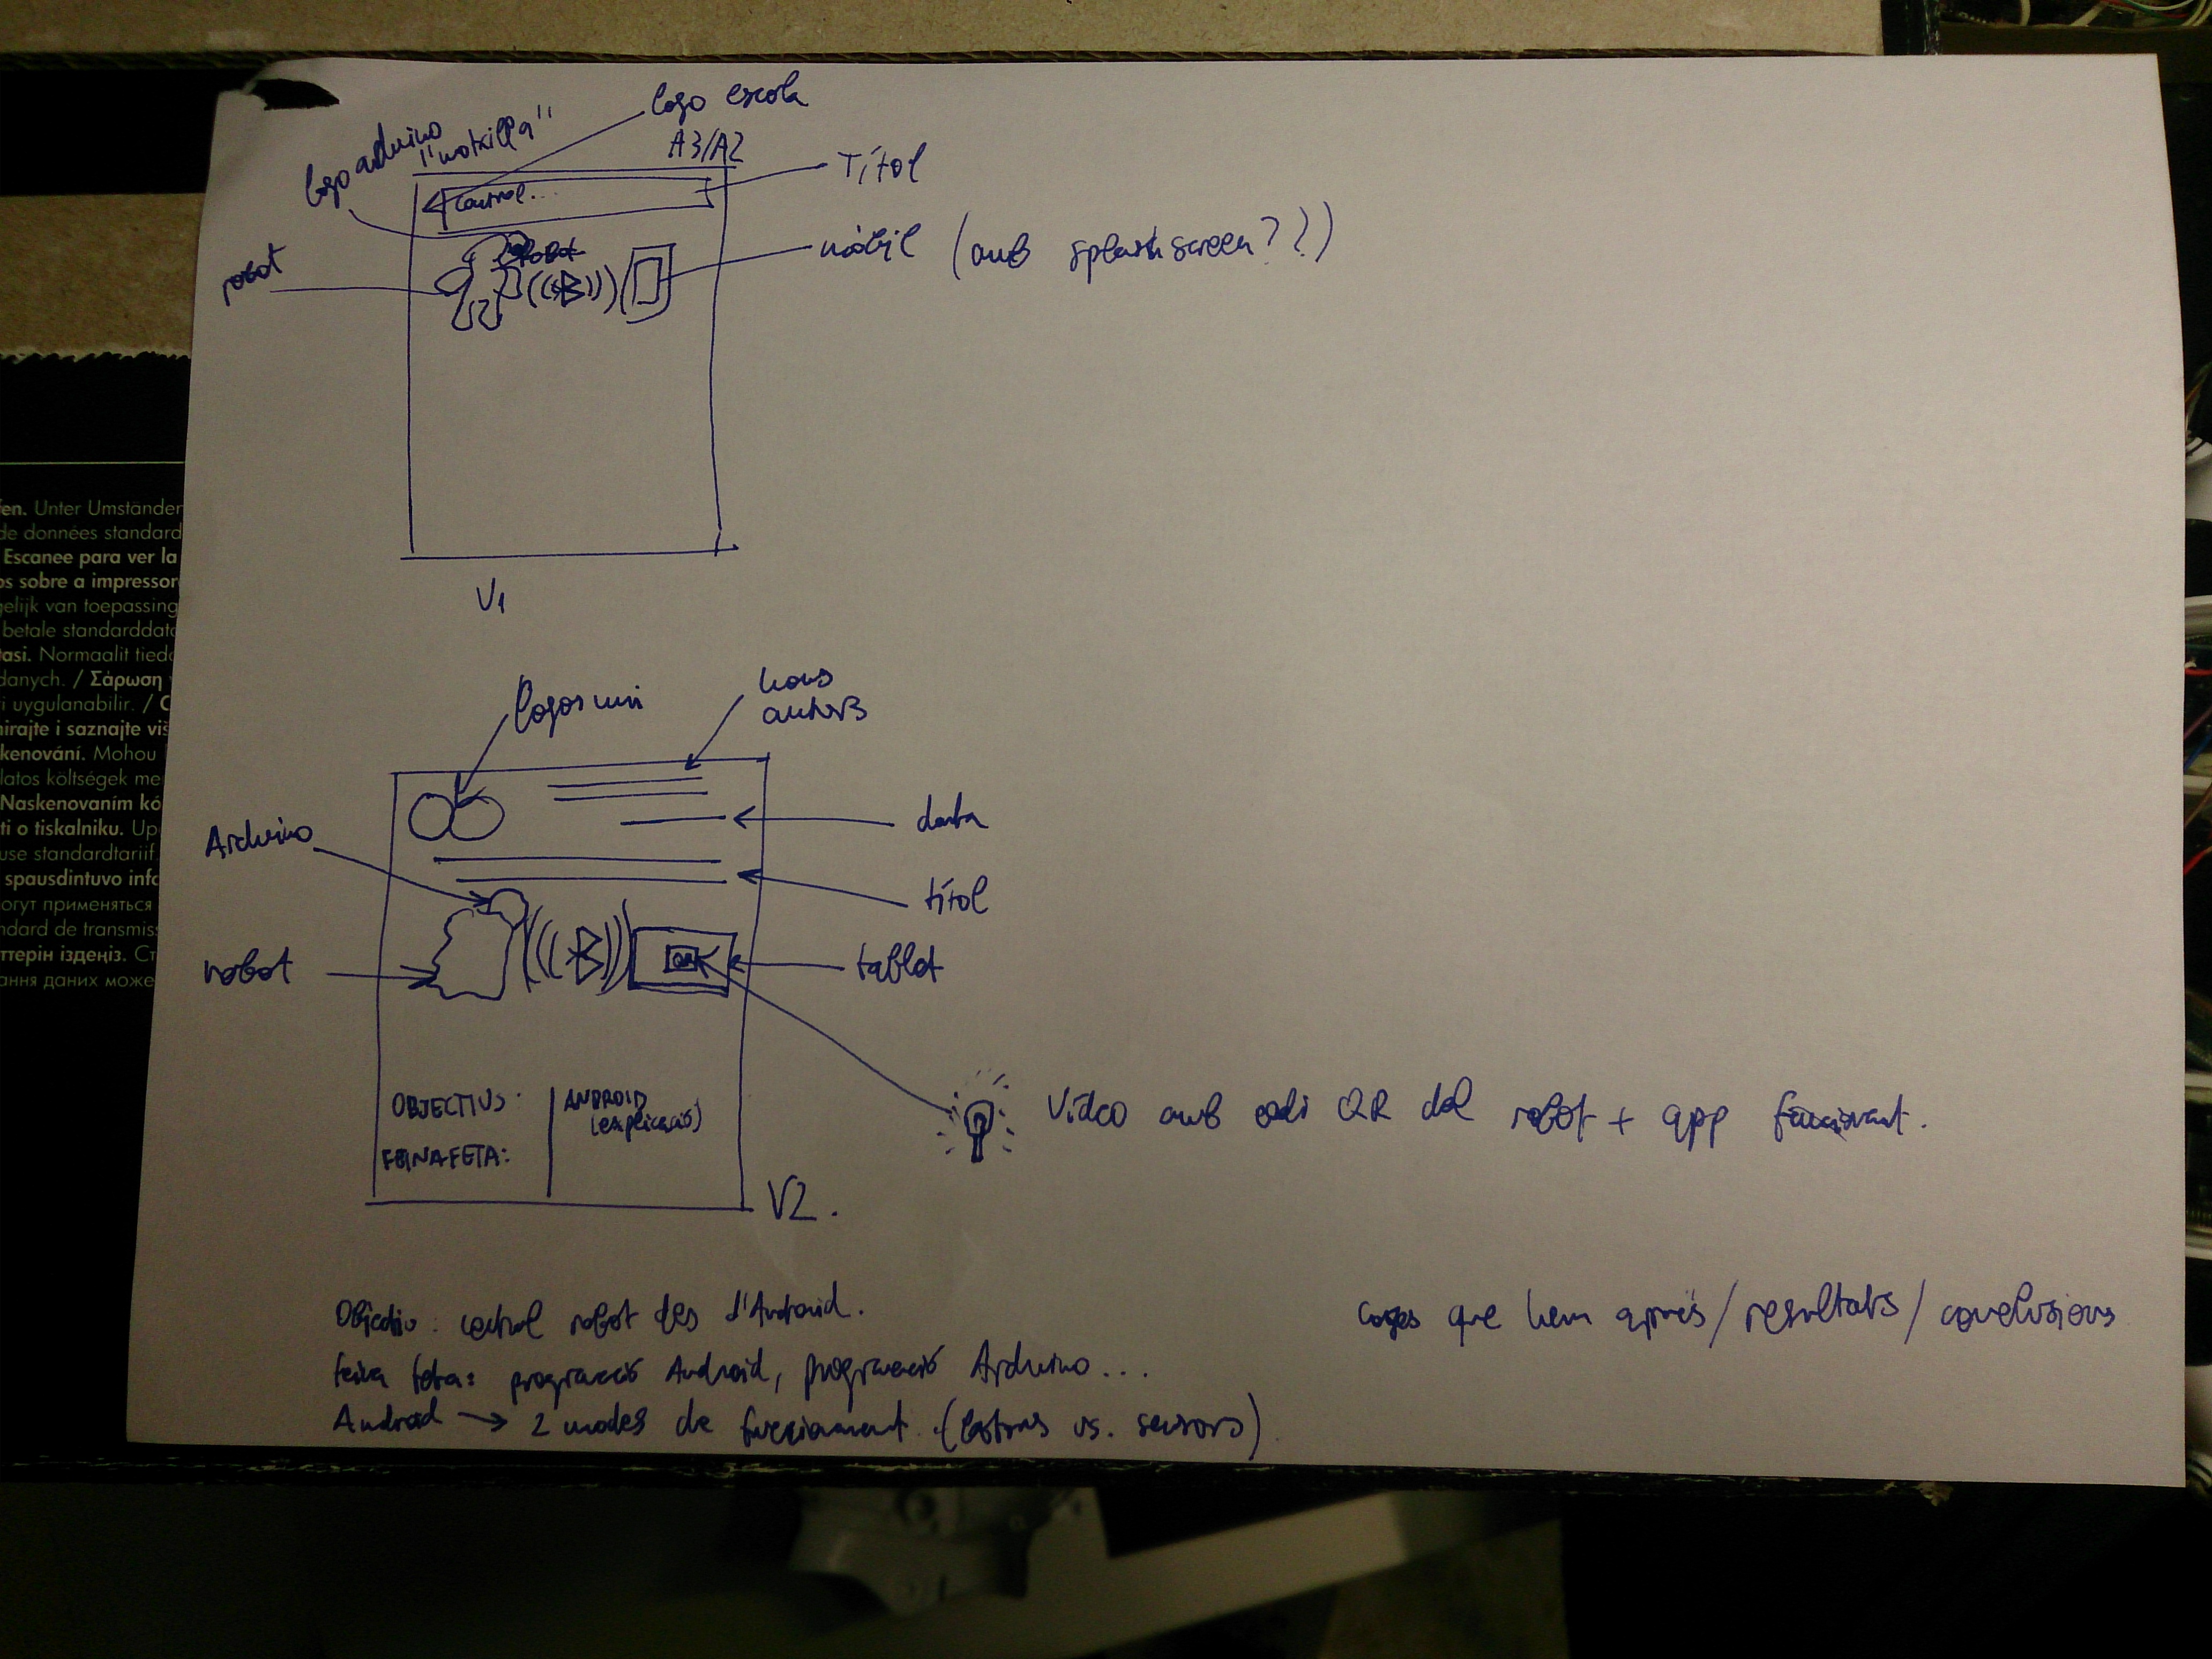 logo escola
logo arduino
"motxilla"
A3/A2
Títol
Control...
robot
robot
mòbil (amb splashscreen??)
V1
logos uni
noms
autors
data
Arduino
títol
robot
tablet
QR
OBJECTIUS:
FEINA FETA:
ANDROID
(explicació)
Vídeo amb codi QR del robot + app funcionant.
V2.
Objectiu: control robot des d'Android.
feina feta: programació Android, programació Arduino...
Android → 2 modes de funcionament (botons vs. sensors)
coses que hem après/resultats/conclusions
fen. Unter Umständen
de données standard
Escanee para ver la
os sobre a impressor
gelijk van toepassing
betale standarddata
tasi. Normaalit tied
danych. / Σάρωση
i uygulanabilir. / C
mirajte i saznajte viš
kenování. Mohou
latos költségek me
Naskenovaním kó
ti o tiskalniku. Up
use standardtariif.
spausdintuvo info
огут применяться
ndard de transmis
ттерін іздеңіз. Ст
ання даних може